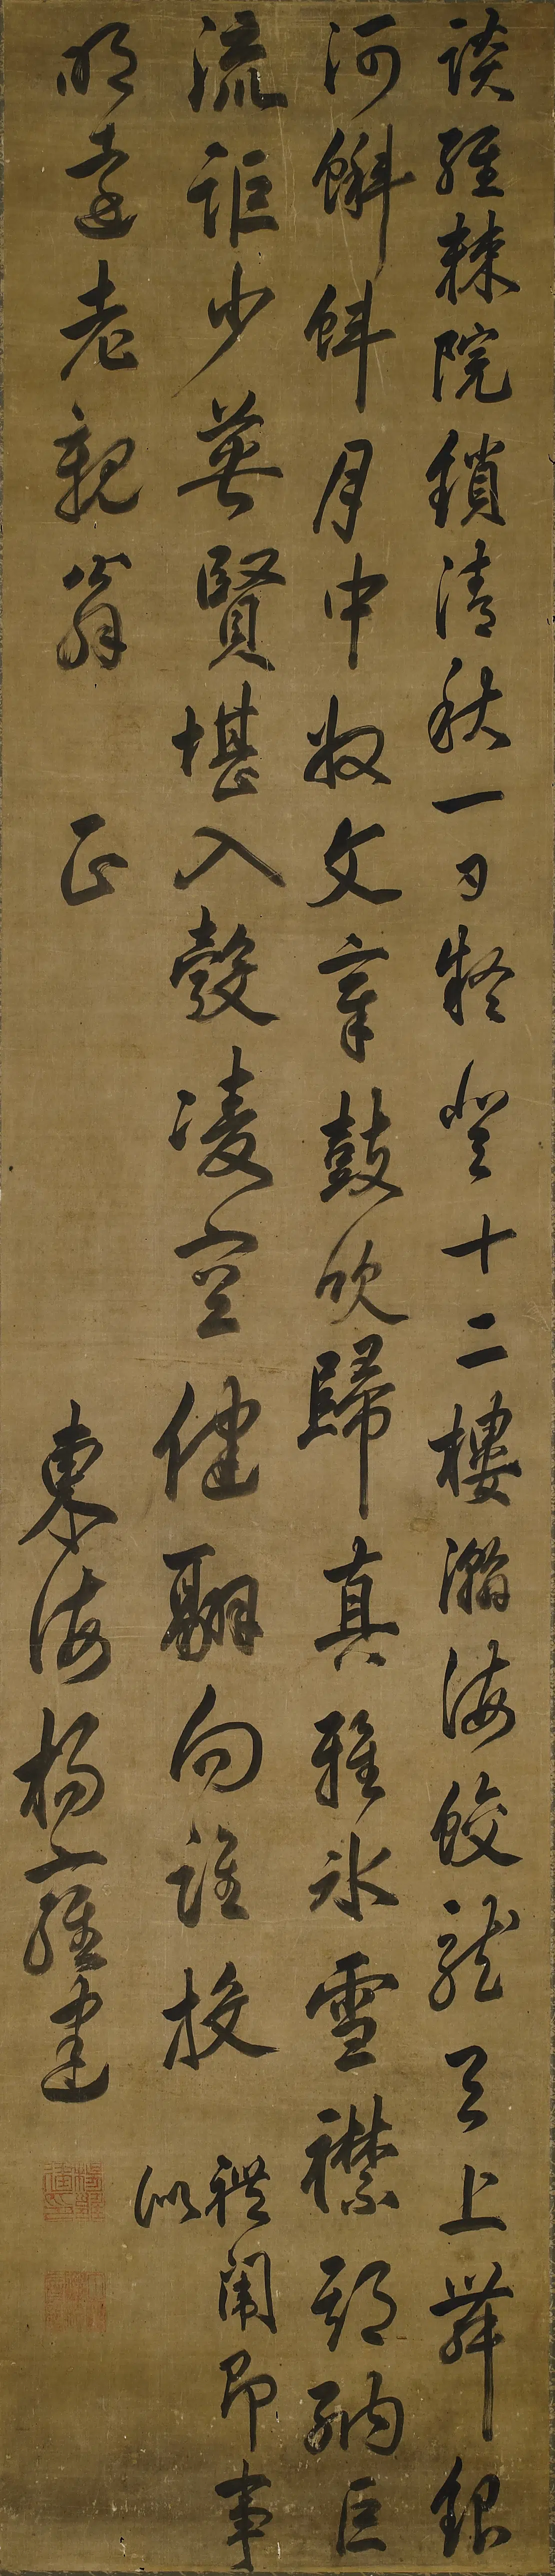 談經棘院鎖清秋一日擬登十二樓瀚海蛟龍天上舞銀
河蝌蚪月中收文章鼓吹歸真雅冰雪襟期納巨
流詎少英賢堪入彀凌空健翮向誰投 禮闈即事
似
明遠老親翁 正 東海楊雍建